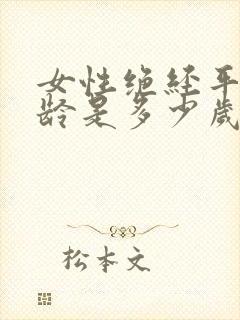 女性绝经平
龄是多少歲
松本文